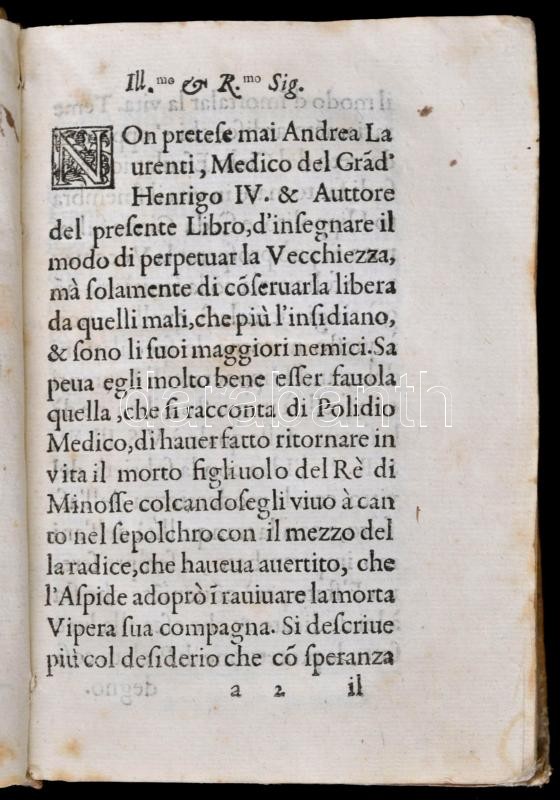 Ill.mo & R.mo Sig.
NOn pretese mai Andrea La
urenti, Medico del Grād'
Henrigo IV. & Auttore
del preſente Libro, d'inſegnare il
modo di perpetuar la Vecchiezza,
mà ſolamente di cōſeruarla libera
da quelli mali, che più l'inſidiano,
& ſono li ſuoi maggiori nemici. Sa
peua egli molto bene eſſer fauola
quella, che ſi racconta di Polidio
Medico, di hauer fatto ritornare in
vita il morto figliuolo del Rè di
Minoſſe colcandoſegli viuo à can
to nel ſepolchro con il mezzo del
la radice, che haueua auertito, che
l'Aſpide adoprò ī rauiuare la morta
Vipera ſua compagna. Si deſcriue
più col deſiderio che cō ſperanza
a 2 il
darabanth